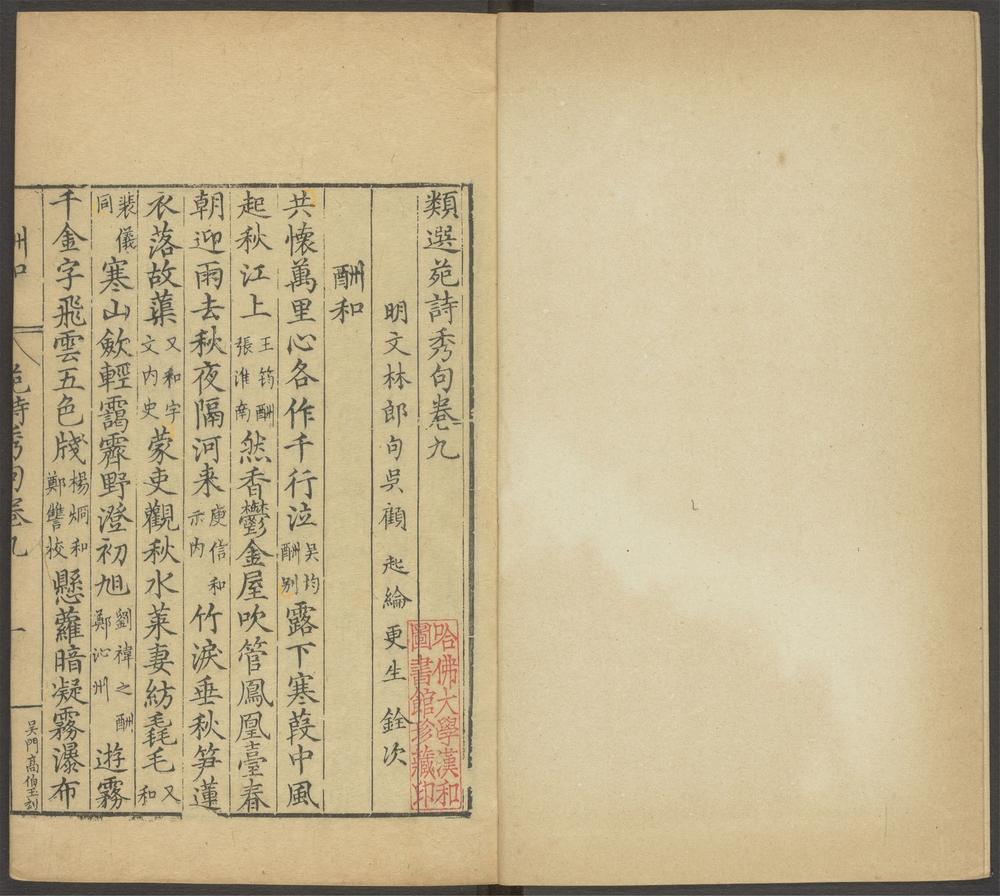 類選苑詩秀句卷九
明文林郎句吳顧起綸更生銓次
酬和
共懷萬里心各作千行泣吳均酬别露下寒葭中風
起秋江上王筠酬張淮南然香鬱金屋吹管鳳凰臺春
朝迎雨去秋夜隔河来庾信和示内竹淚垂秋笋蓮
衣落故蕖又和宇文内史蒙吏觀秋水萊妻紡毳毛又和
裴儀同寒山歛輕靄霽野澄初旭劉禕之酬鄭沁州遊霧
千金字飛雲五色牋楊烱和鄭讐校懸蘿暗凝霧瀑布
酬和
苑詩秀句卷九
一
吴門高伯玉刻
哈佛大學漢和
圖書館珍藏印